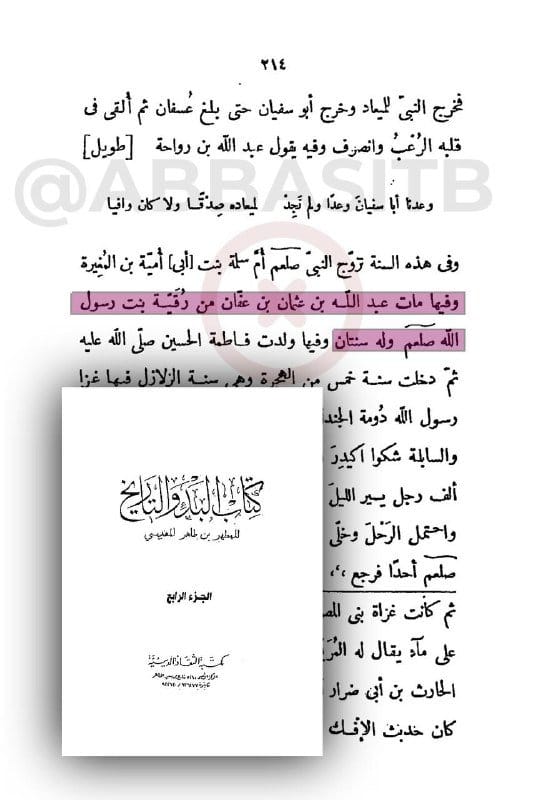 ٢١٤
فخرج النبىّ للميعاد وخرج أبو سفيان حتى بلغ عُسفان ثم ألقى فى
قلبه الرُعْبُ وانصرف وفيه يقول عبد اللّه بن رواحة [طويل]
@ABBASITB
وعدنا أبا سفيان وعدًا ولم نَجِدْ لميعاده صِدْقًا ولا كان وافيا
وفى هذه السنة تزوّج النبىّ صلعم أمّ سلمة بنت [أبى] أُميّة بن المُغيرة
وفيها مات عبد اللّه بن عثمان بن عفّان من رُقيّة بنت رسول
اللّه صلعم وله سنتان وفيها ولدت فاطمة الحسين صلّى اللّه عليه
ثمّ دخلت سنة خمس من الهجرة وهى سنة الزلازل فيها غزا
رسول اللّه دُومة الجند
والسابلة شكوا اكيدِرَ
ألف رجل يسير الليلَ
واحتمل الرَحْلَ وخلّى
صلعم أحدًا فرجع ،،
ثم كانت غزاة بنى المص
على مآء يقال له المُرَيْ
الحارث بن أبى ضرار
كان حديث الإفك
كتاب البدء والتاريخ
للمطهر بن طاهر المقدسي
الجزء الرابع
مكتبة الثقافة الدينية